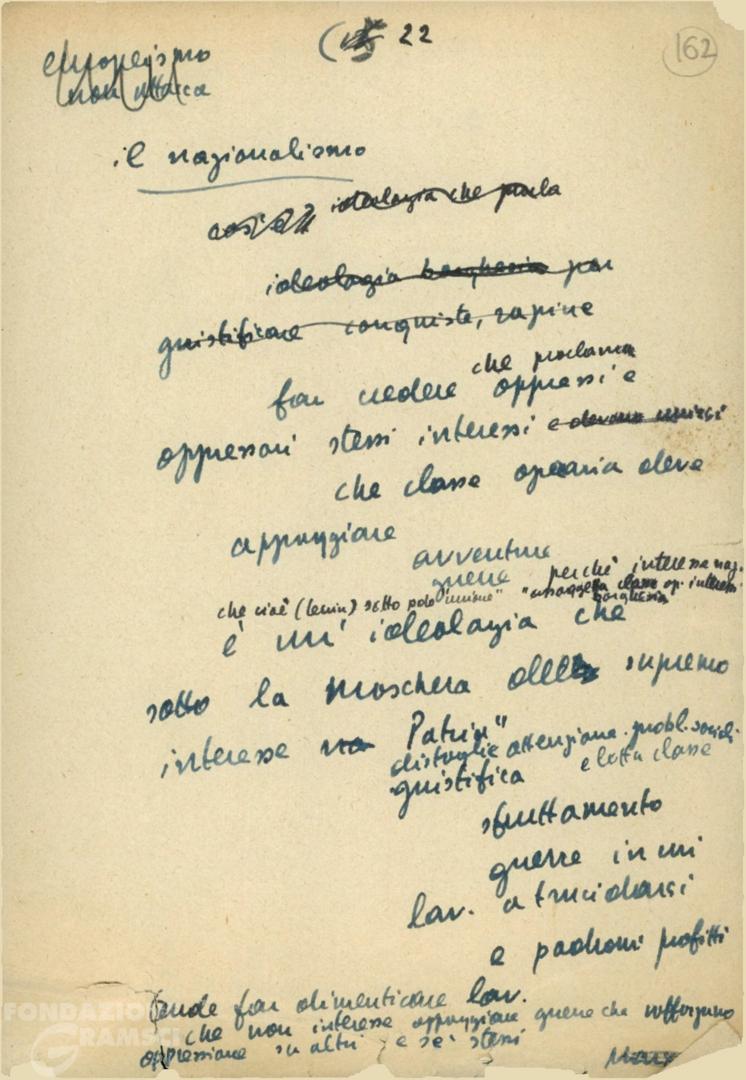 22
162
europeismo
non attacca
il nazionalismo
cos'è ideologia che parla
ideologia borghesia per
giustificare conquiste, rapine
che proclama
far credere oppressi e
oppressori stessi interessi e devono unirsi
che classe operaia deve
appoggiare
avventure
guerre perchè interesse naz.
che cioè (Lenin) sotto "unione" "assoggetta classe op. interessi
borghesia"
è un'ideologia che
sotto la maschera della supremo
interesse Patria"
distoglie attenzione probl. sociali
e lotta classe
giustifica
sfruttamento
guerre in cui
lav. a trucidarsi
e padroni profitti
Tende far dimenticare lav.
che non interesse appoggiare guerre che rafforzano
oppressione su altri e se stessi
Marx
FONDAZIONE
GRAMSCI